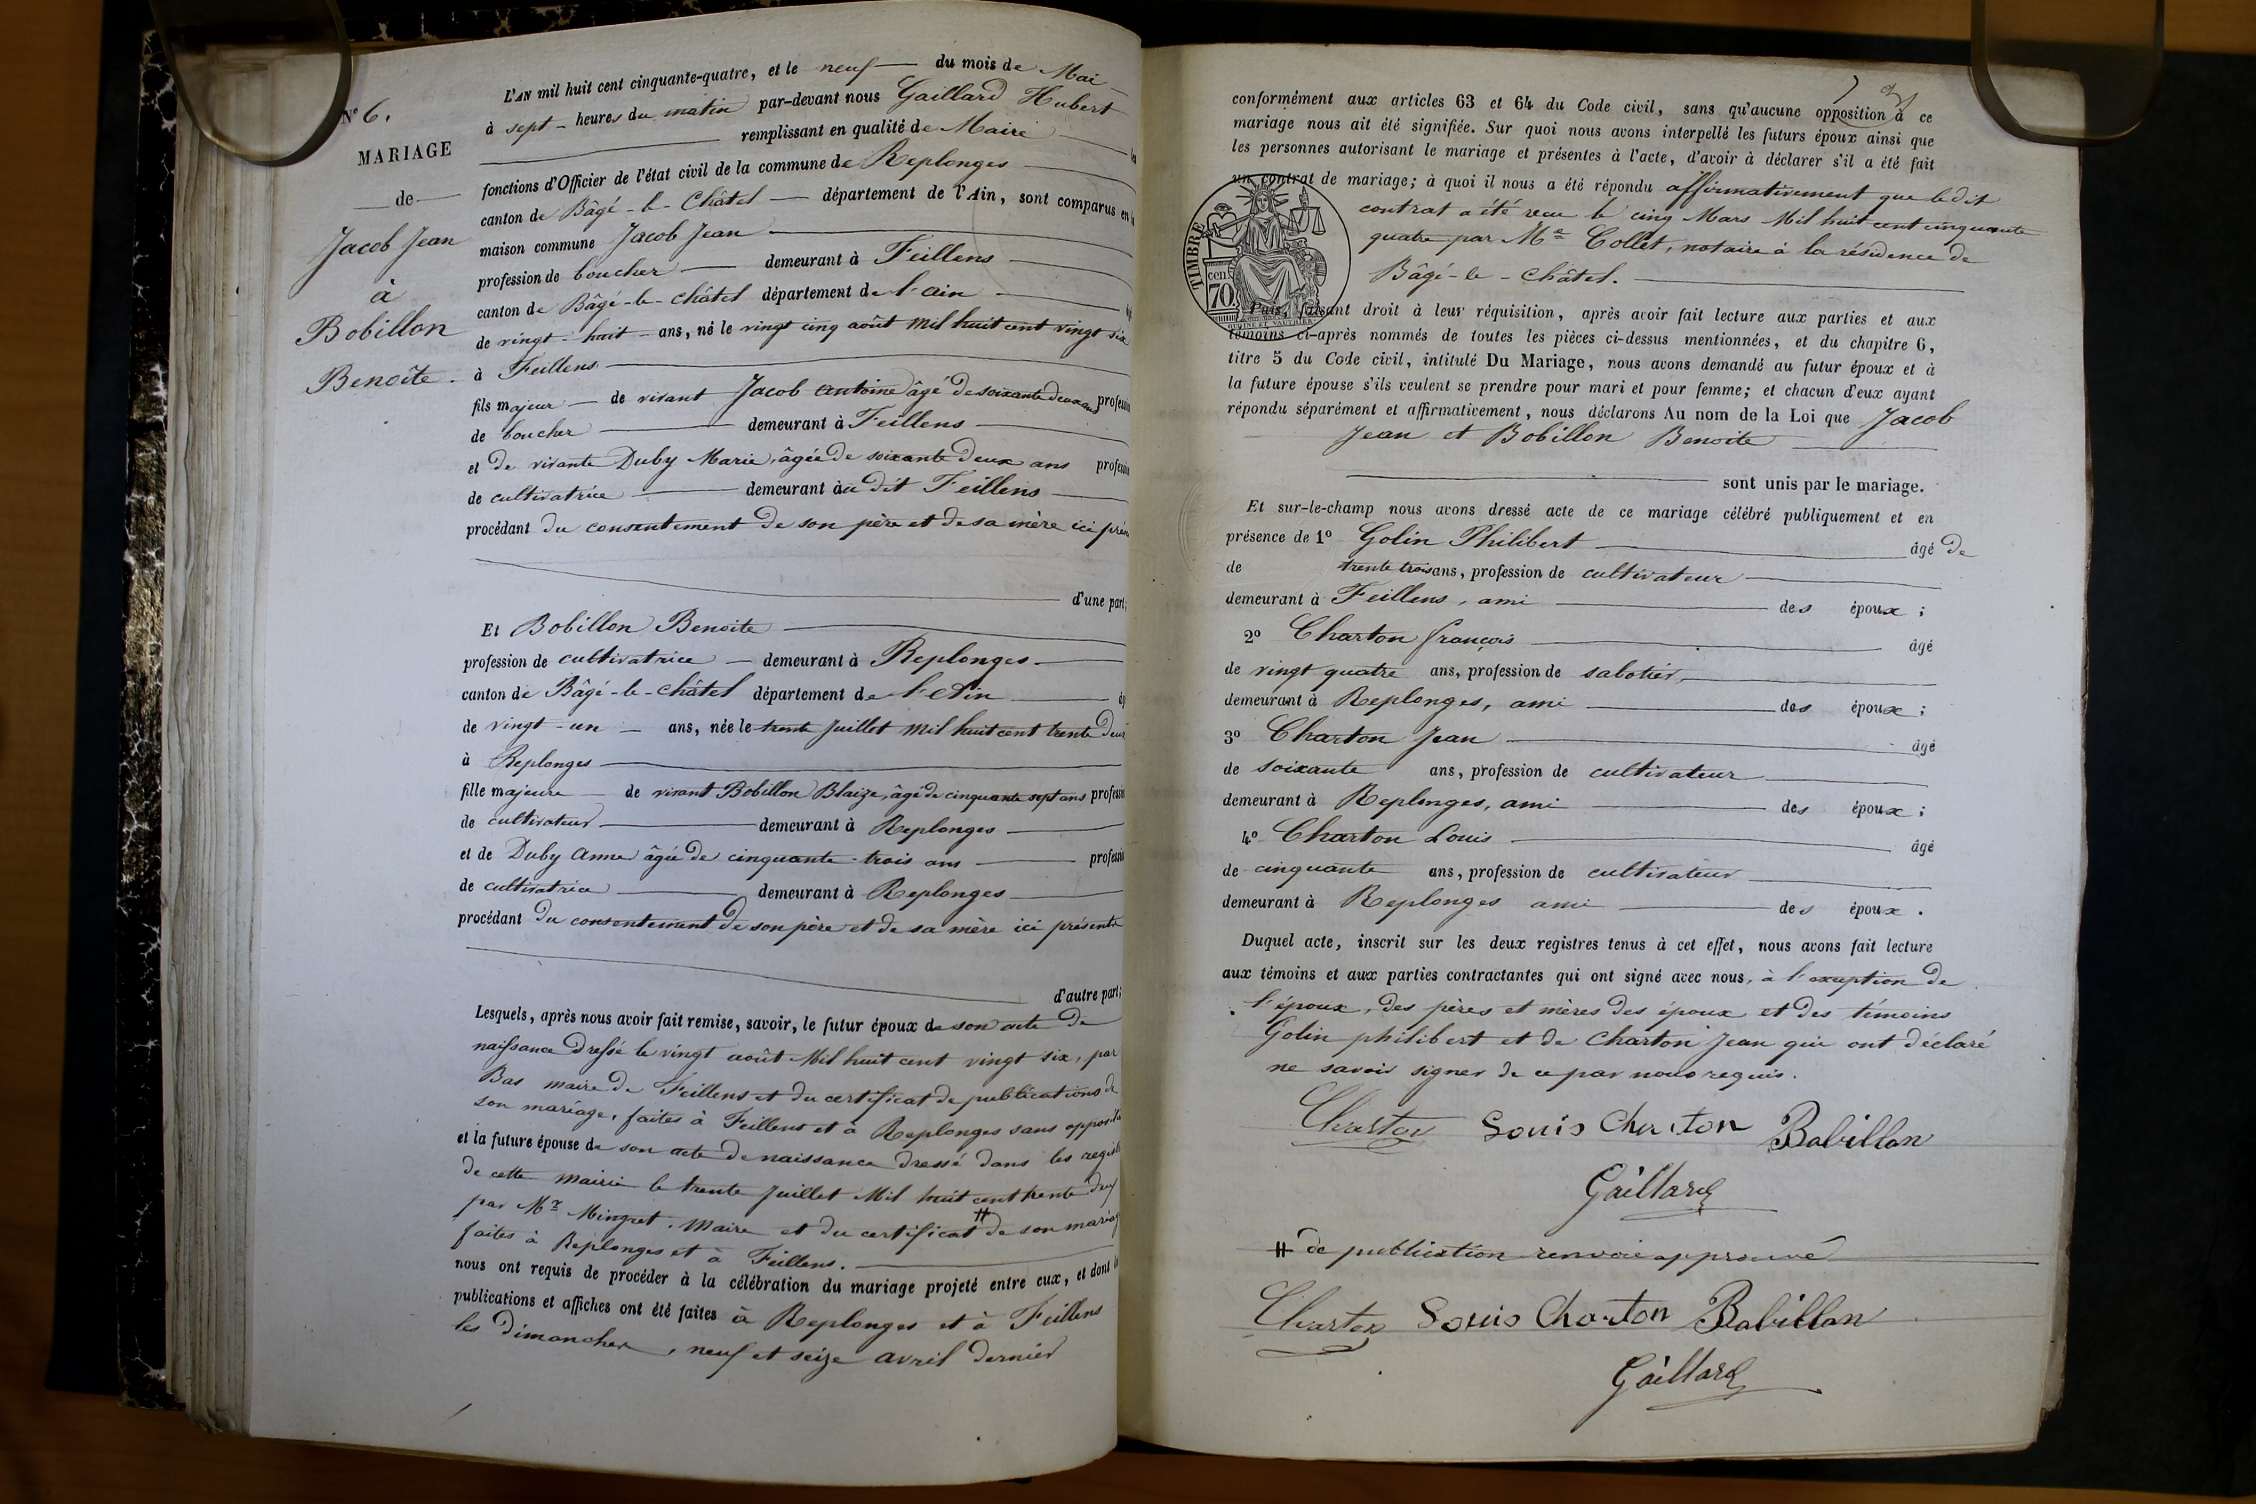 N° 6.
MARIAGE
de
Jacob Jean
à
Bobillon
Benoîte.
L'AN mil huit cent cinquante-quatre, et le neuf du mois de Mai
à sept heures du matin par-devant nous Gaillard Hubert
remplissant en qualité de Maire les
fonctions d'Officier de l'état civil de la commune de Replonges
canton de Bâgé-le-Châtel département de l'Ain, sont comparus en la
maison commune Jacob Jean
profession de boucher demeurant à Feillens
canton de Bâgé-le-châtel département de l'ain
de vingt-huit ans, né le vingt cinq août mil huit cent vingt six
à Feillens
fils majeur de vivant Jacob antoine âgé de soixante deux ans profession
de boucher demeurant à Feillens
et de vivante Duby Marie, âgée de soixante deux ans profession
de cultivatrice demeurant au dit Feillens
procédant du consentement de son père et de sa mère ici prés
d'une part;
Et Bobillon Benoite
profession de cultivatrice demeurant à Replonges
canton de Bâgé-le-châtel département de l'Ain
de vingt-un ans, née le trente juillet mil huit cent trente deux
à Replonges
fille majeure de vivant Bobillon Blaize, âgé de cinquante sept ans profession
de cultivateur demeurant à Replonges
et de Duby Anne âgée de cinquante-trois ans profession
de cultivatrice demeurant à Replonges
procédant du consentement de son père et de sa mère ici présents
d'autre part;
Lesquels, après nous avoir fait remise, savoir, le futur époux de son acte de
naissance dressé le vingt août Mil huit cent vingt six, par
Bas maire de Feillens et du certificat de publications de
son mariage, faites à Feillens et à Replonges sans opposition
et la future épouse de son acte de naissance dressé dans les regist
de cette mairie le trente juillet Mil huit cent trente deux
par Mr Mingret, Maire et du certificat # de son mariage
faites à Replonges et à Feillens.
nous ont requis de procéder à la célébration du mariage projeté entre eux, et dont les
publications et affiches ont été faites à Replonges et à Feillens
les dimanches, neuf et seize avril dernier
conformément aux articles 63 et 64 du Code civil, sans qu'aucune opposition à ce
mariage nous ait été signifiée. Sur quoi nous avons interpellé les futurs époux ainsi que
les personnes autorisant le mariage et présentes à l'acte, d'avoir à déclarer s'il a été fait
un contrat de mariage; à quoi il nous a été répondu affirmativement que ledit
contrat a été reçu le cinq Mars Mil huit cent cinquante
quatre par Me Collet, notaire à la résidence de
Bâgé-le-Châtel.
TIMBRE
cen.
70.
Puis, faisant droit à leur réquisition, après avoir fait lecture aux parties et aux
témoins ci-après nommés de toutes les pièces ci-dessus mentionnées, et du chapitre 6,
titre 5 du Code civil, intitulé Du Mariage, nous avons demandé au futur époux et à
la future épouse s'ils veulent se prendre pour mari et pour femme; et chacun d'eux ayant
répondu séparément et affirmativement, nous déclarons Au nom de la Loi que Jacob
Jean et Bobillon Benoite
sont unis par le mariage.
Et sur-le-champ nous avons dressé acte de ce mariage célébré publiquement et en
présence de 1° Golin Philibert âgé de
de trente trois ans, profession de cultivateur
demeurant à Feillens, ami des époux;
2° Charton françois âgé
de vingt quatre ans, profession de sabotier
demeurant à Replonges, ami des époux;
3° Charton Jean âgé
de soixante ans, profession de cultivateur
demeurant à Replonges, ami des époux;
4° Charton Louis âgé
de cinquante ans, profession de cultivateur
demeurant à Replonges ami des époux.
Duquel acte, inscrit sur les deux registres tenus à cet effet, nous avons fait lecture
aux témoins et aux parties contractantes qui ont signé avec nous, à l'exception de
l'époux, des pères et mères des époux et des témoins
Golin philibert et de Charton Jean qui ont déclaré
ne savoir signer de ce par nous requis.
Charton Louis Charton Bobillon
Gaillard
# de publication renvoie approuvé
Charton Louis Charton Bobillon
Gaillard